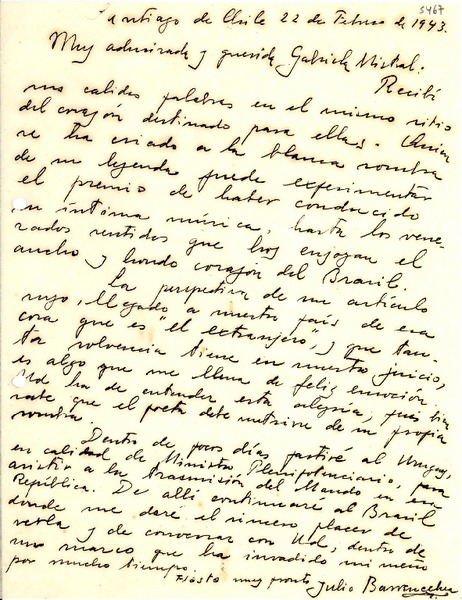 5467
Santiago de Chile 22 de Febrero de 1943.
Muy admirada y querida Gabriela Mistral:
Recibí
sus calidas palabras en el mismo sitio
del corazón destinado para ellas. Quien
se ha criado a la blanca sombra
de su leyenda puede experimentar
el premio de haber conducido
su íntima música, hasta los vene-
rados sentidos que hoy enjoyan el
ancho y hondo corazón del Brasil.
La perspectiva de un artículo
suyo, llegado a nuestro país de esa
cosa que es "el extranjero", y que tan-
ta solvencia tiene en nuestro juicio,
es algo que me llena de feliz emoción.
Ud ha de entender esta alegría, pues bien
sabe que el poeta debe nutrirse de su propia
sombra.
Dentro de pocos días partiré al Uruguay,
en calidad de Ministro Plenipotenciario, para
asistir a la trasmisión del Mando en esa
República. De allí continuaré al Brasil
donde me daré el sincero placer de
verla y de conversar con Ud, dentro de
un marco que ha invadido mi sueño
por mucho tiempo.
Hasta muy pronto Julio Barrenechea